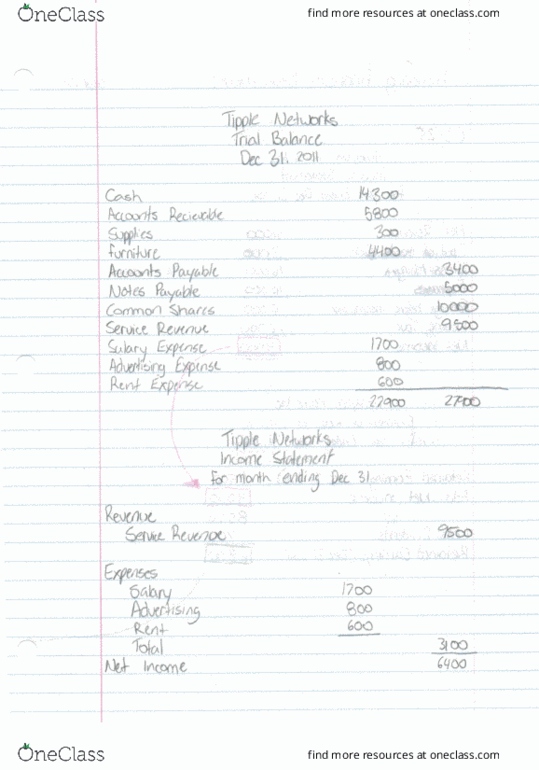 OneClass find more resources at oneclass.com
Tipple Networks
Trial Balance
Dec 31, 2011
Cash 14300
Accounts Recievable 5800
Supplies 300
Furniture 4400
Accounts Payable 3400
Notes Payable 5000
Common Shares 10000
Service Revenue 9500
Salary Expense 1700
Advertising Expense 800
Rent Expense 600
27900 27900
Tipple Networks
Income Statement
For month ending Dec 31
Revenue
Service Revenue 9500
Expenses
Salary 1700
Advertising 800
Rent 600
Total 3100
Net Income 6400
OneClass find more resources at oneclass.com